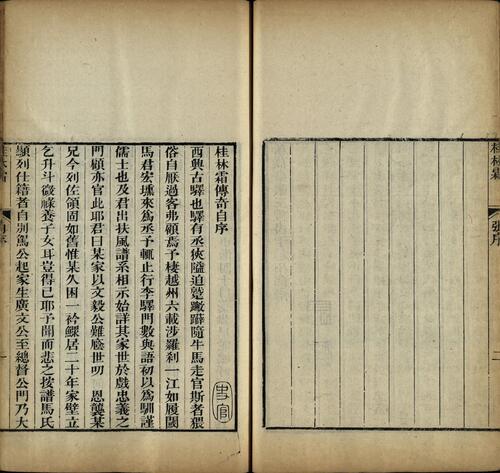 桂林霜
張序
二
桂林霜傳奇自序
西興古驛也驛有丞狹隘迫隨牛馬走官斯者猥
俗自厭過客弗顧焉予棲越州六載涉羅剎一江如履閾
馬君宏壎來爲丞予輒止行李驛門數與語初以爲馴謹
儒士也及君出扶風譜系相示始詳其家世於戲忠義之
門顧亦官此耶君曰某家以文毅公難廕世叨 恩襲某
兄今列佐領固如舊惟某久困一衿鰥居二十年家壁立
乞升斗微祿養子女耳豈得已耶予聞而悲之按譜馬氏
顯列仕籍者自駕公起家生廣文公至總督公門乃大
史官
桂林霜
自序